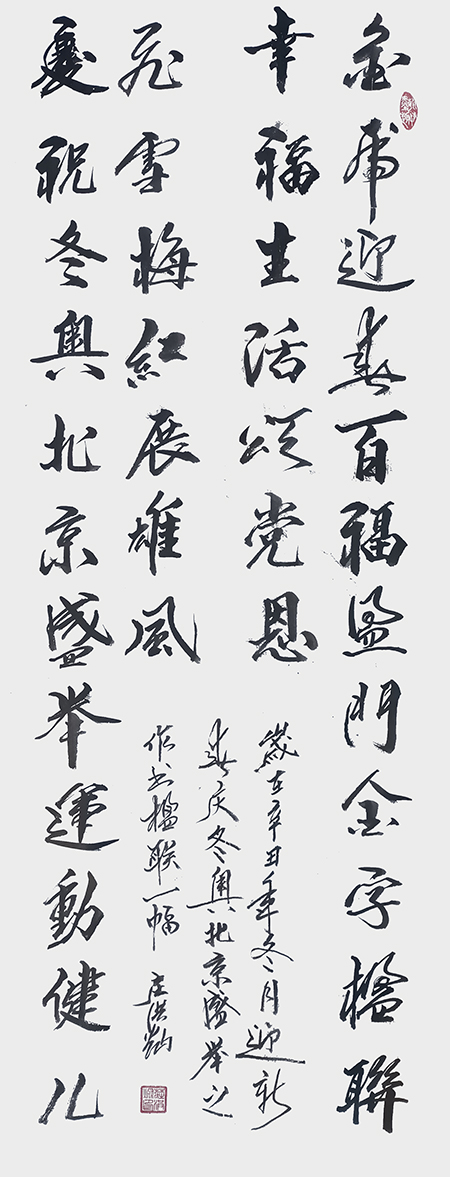 金虎迎春百福盈門金字楹聯
幸福生活頌党恩
慶祝冬奧北京盛举運動健儿
飛雪梅紅展雄風
歲在辛丑年冬月迎新
春庆冬奧北京盛举之
作书楹联一幅 庄洪灿